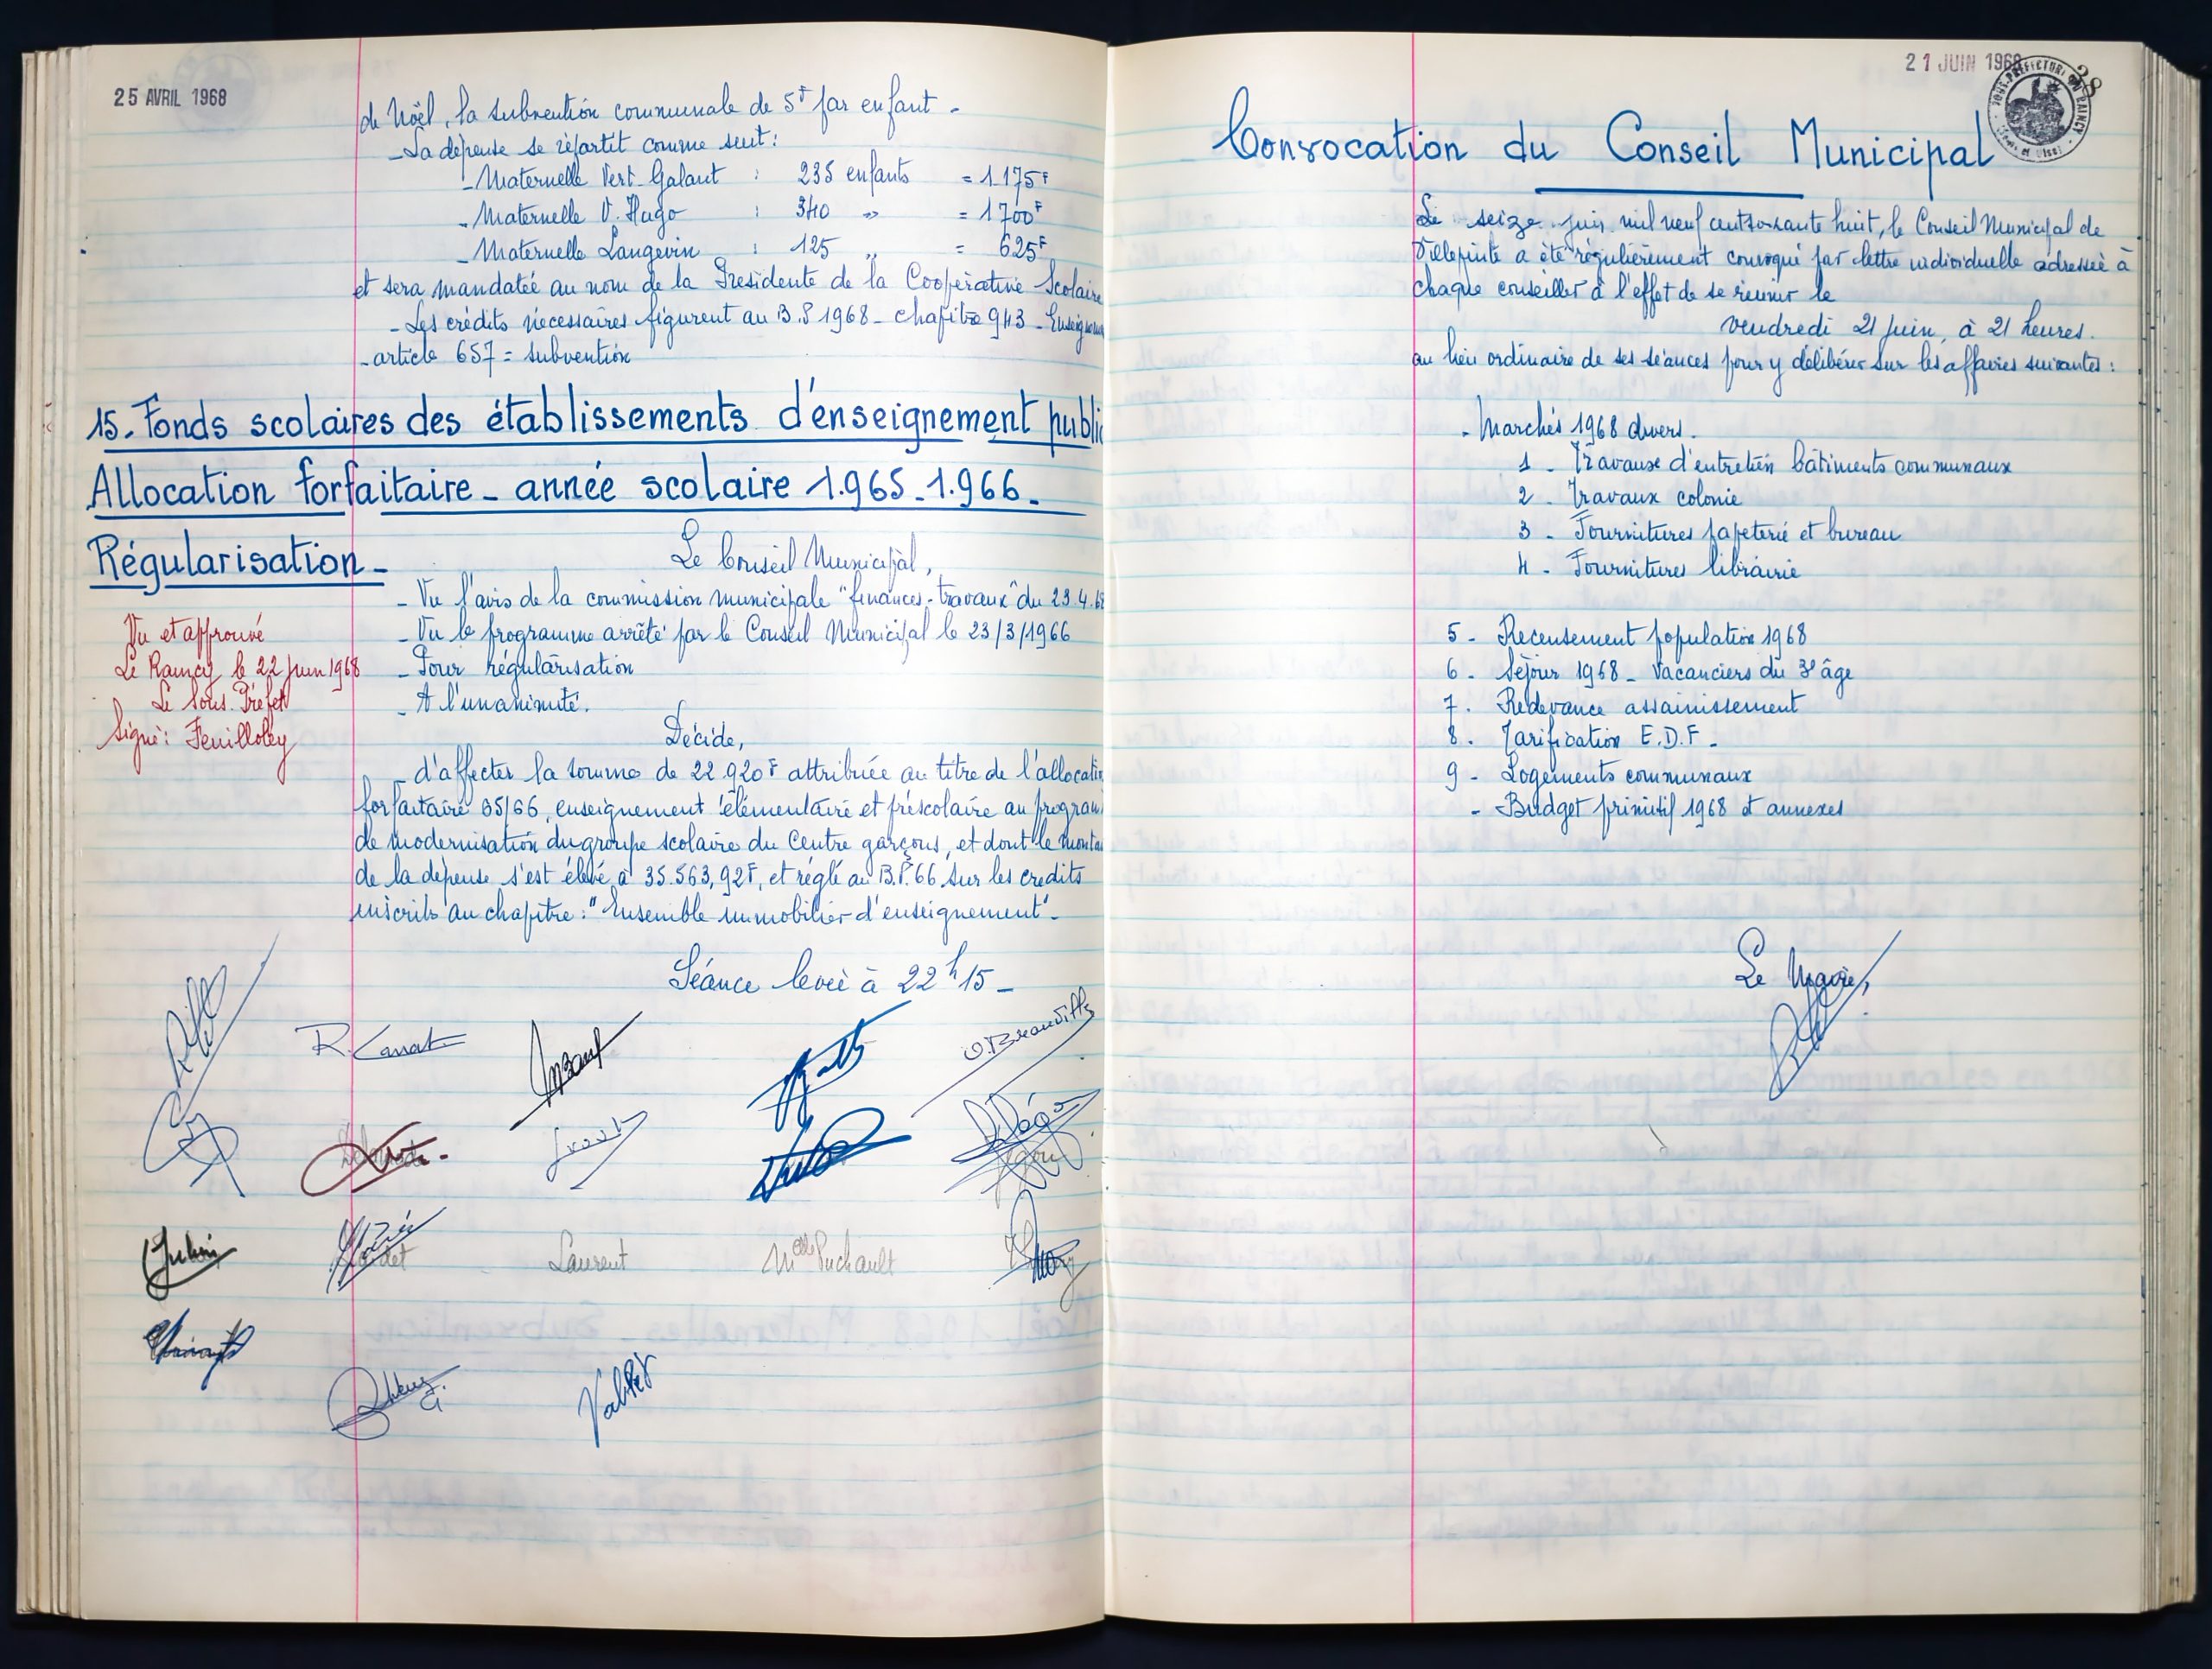 25 AVRIL 1968
de Noël, la subvention communale de 5F par enfant -
- La dépense se répartit comme suit :
- Maternelle Vert-Galant : 235 enfants = 1 175F
- Maternelle V. Hugo : 340 " = 1 700F
- Maternelle Langevin : 125 " = 625F
et sera mandatée au nom de la Présidente de la Coopérative Scolaire
- Les crédits nécessaires figurent au B.P 1968 - chapitre 943 -
- article 657 = subvention
15. Fonds scolaires des établissements d'enseignement public
Allocation forfaitaire - année scolaire 1.965-1.966 -
Régularisation -
Le Conseil Municipal,
- Vu l'avis de la commission municipale "finances-travaux" du 23.4.68
- Vu le programme arrêté par le Conseil Municipal le 23/3/1966
- Pour régularisation
- A l'unanimité.
Vu et approuvé
Le Raincy le 22 juin 1968
Le Sous-Préfet
Signé: Feuilloley
Décide,
- d'affecter la somme de 22.920F attribuée au titre de l'allocation
forfaitaire 65/66, enseignement élémentaire et préscolaire au
de modernisation du groupe scolaire du Centre garçons, et dont le
de la dépense s'est élevé à 35.563,92F, et réglé au B.P. 66 sur les crédits
inscrits au chapitre : "Ensemble immobilier d'enseignement" -
Séance levée à 22h15 -
R. Canat
Laurent
Melle Puchault
21 JUIN 1968
38
SOUS-PRÉFECTURE DU RAINCY
Convocation du Conseil Municipal
Le seize juin mil neuf cent soixante huit, le Conseil Municipal de
Villepinte a été régulièrement convoqué par lettre individuelle adressée à
chaque conseiller à l'effet de se réunir le
vendredi 21 juin, à 21 heures.
au lieu ordinaire de ses séances pour y délibérer sur les affaires suivantes :
- Marchés 1968 divers.
1 - Travaux d'entretien bâtiments communaux
2 - Travaux colonie
3 - Fournitures papeterie et bureau
4 - Fournitures librairie
5 - Recensement population 1968
6 - Séjour 1968 - Vacanciers du 3e âge
7. Redevance assainissement
8. Tarification E.D.F -
9 - Logements communaux
- Budget primitif 1968 et annexes
Le Maire,